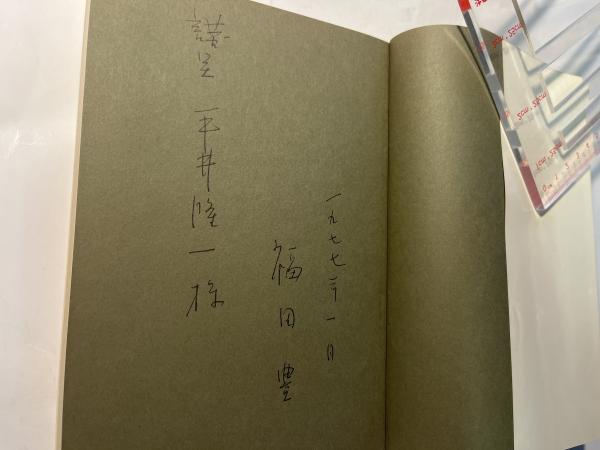 一九七七年一月
福田豊
謹呈 平井隆一様